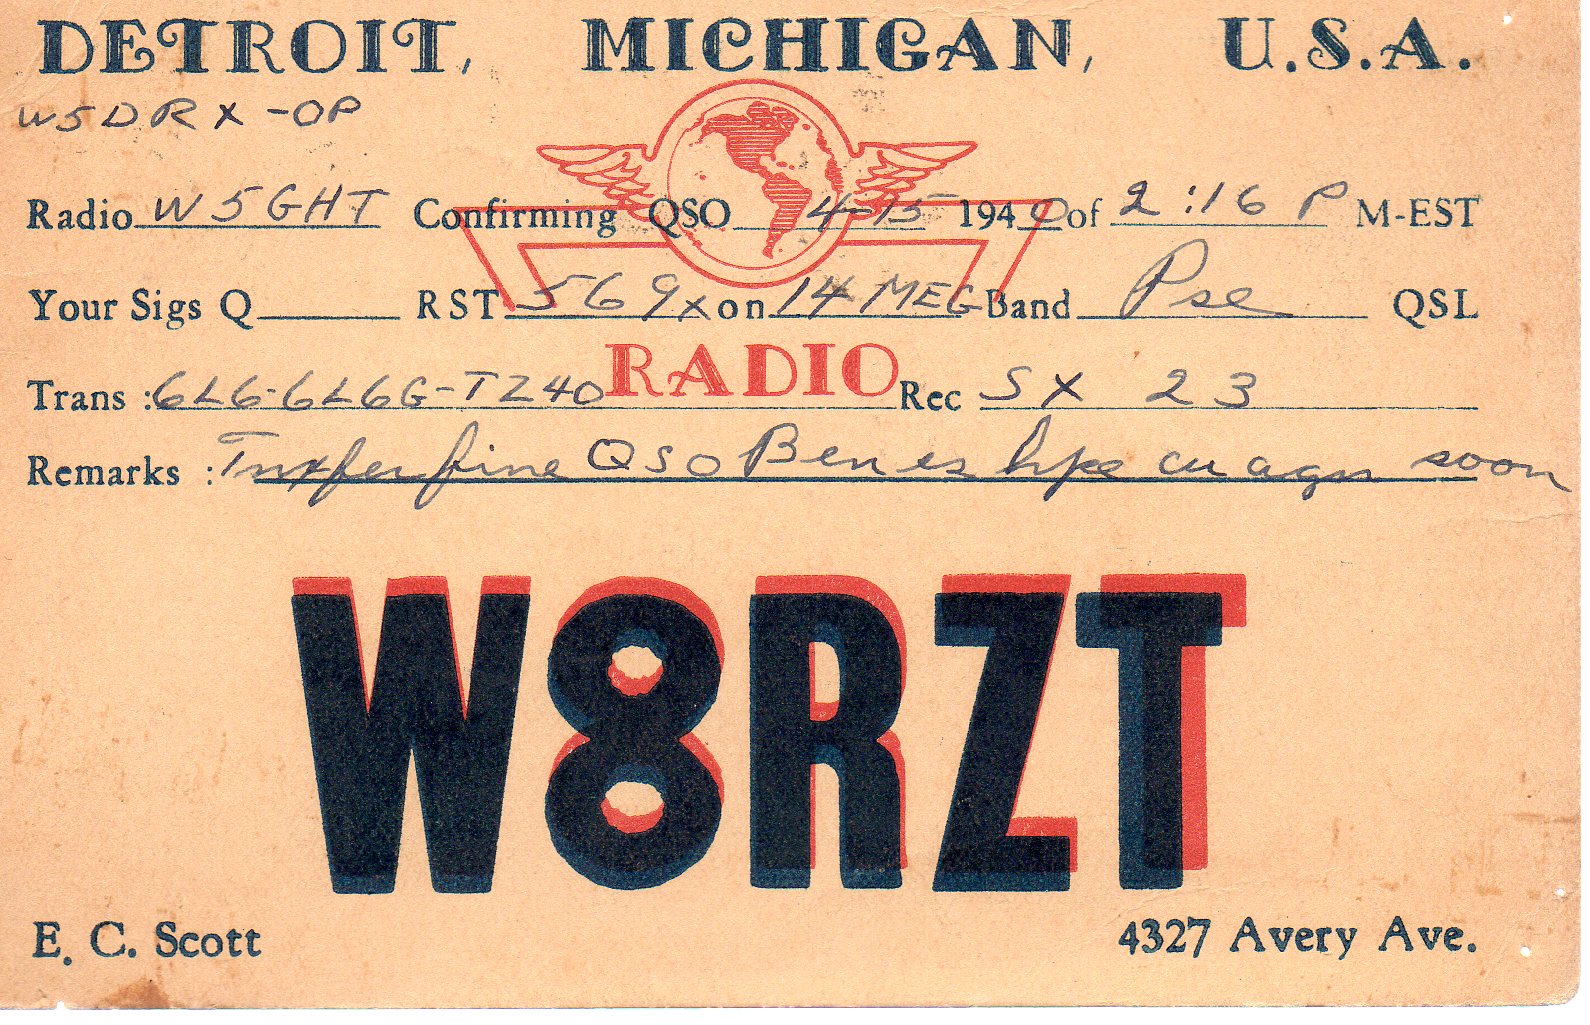 DETROIT, MICHIGAN, U.S.A.
W5DRX-OP
Radio W5GHT Confirming QSO 4-15 1940 of 2:16 P M-EST
Your Sigs Q RST 569x on 14 MEG Band Pse QSL
Trans : 6L6-6L6G-TZ40 RADIO Rec SX 23
Remarks : Tnx fer fine QSO Ben es hpe cu agn soon
W8RZT
E. C. Scott 4327 Avery Ave.